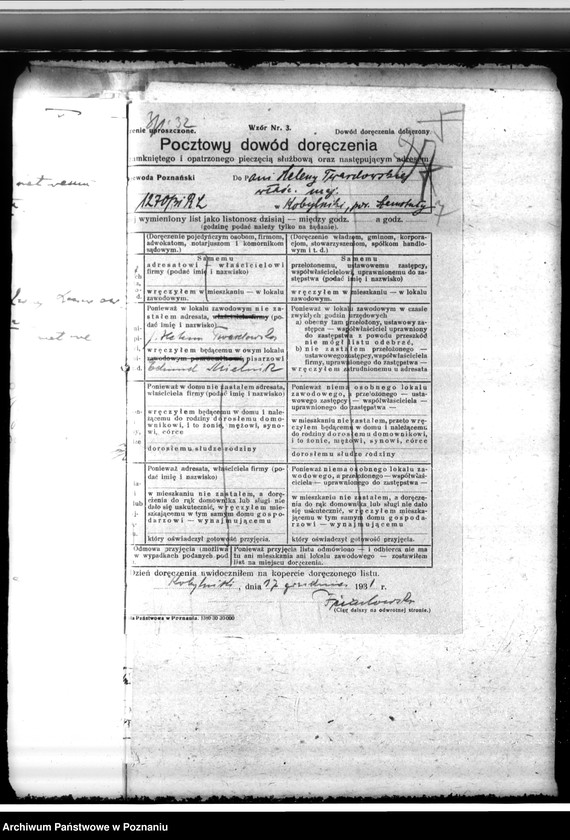 Wzór Nr. 3.
enie uproszczone. Dowód doręczenia dołączony
Pocztowy dowód doręczenia
mkniętego i opatrzonego pieczęcią służbową oraz następującym adresem
woda Poznański Do Pani Heleny Twardowskiej
właśc. maj.
1270/31 RZ w Kobylniki, pow. Szamotuły
wymieniony list jako listonosz dzisiaj — między godz. a godz.
(godzinę podać należy tylko na żądanie).
(Doręczenie pojedyńczym osobom, firmom,
adwokatom, notarjuszom i komornikom
sądowym.)
Samemu
adresatowi — właścicielowi
firmy (podać imię i nazwisko)
wręczyłem w mieszkaniu — w lokalu
zawodowym.
Ponieważ w lokalu zawodowym nie za-
stałem adresata, właściciela firmy (po-
dać imię i nazwisko)
Helena Twardowska
wręczyłem będącemu w owym lokalu
zawodowym pisarzowi
Edmund
Ponieważ w domu nie zastałem adresata,
właściciela firmy (podać imię i nazwisko)
wręczyłem będącemu w domu i nale-
żącemu do rodziny dorosłemu domo-
wnikowi, i to żonie, mężowi, syno-
wi, córce
dorosłemu słudze rodziny
Ponieważ adresata, właściciela firmy (po-
dać imię i nazwisko)
w mieszkaniu nie zastałem, a dorę-
czenia do rąk domownika lub sługi nie
dało się uskutecznić, wręczyłem mie-
szkającemu w tym samym domu gospo-
darzowi — wynajmującemu
który oświadczył gotowość przyjęcia.
(Doręczenie władzom, gminom, korpora-
cjom, stowarzyszeniom, spółkom handlo-
wym i t. d.)
Samemu
przełożonemu, ustawowemu zastępcy,
współwłaścicielowi, uprawnionemu do za-
stępstwa (podać imię i nazwisko)
wręczyłem w mieszkaniu — w lokalu
zawodowym.
Ponieważ w lokalu zawodowym w czasie
zwykłych godzin urzędowych
a) obecny tam przełożony, ustawowy za-
stępca — współwłaściciel uprawniony
do zastępstwa z powodu przeszkód
nie mógł listu odebrać,
b) nie zastałem przełożonego —
ustawowego zastępcy, współwłaściciela
firmy, uprawnionego do zastępstwa —
wręczyłem zatrudnionemu u adresata
Ponieważ niema osobnego lokalu
zawodowego, a przełożonego — usta-
wowego zastępcy — współwłaściciela —
uprawnionego do zastępstwa —
w mieszkaniu nie zastałem, przeto wrę-
czyłem będącemu w domu i należącemu
do rodziny dorosłemu domownikowi,
i to żonie, mężowi, synowi, córce
dorosłemu słudze rodziny
Ponieważ niema osobnego lokalu za-
wodowego, a przełożonego — współwłaści-
ciela — uprawnionego do zastępstwa —
w mieszkaniu nie zastałem, a doręcze-
nia do rąk domownika lub sługi nie dało
się uskutecznić, wręczyłem mieszka-
jącemu w tym samym domu gospoda-
rzowi — wynajmującemu
który oświadczył gotowość przyjęcia.
Odmowa przyjęcia (możliwa
w wypadkach podanych pod
Ponieważ przyjęcia listu odmówiono — i odbiercа nie ma
tu ani mieszkania ani lokalu zawodowego — zostawiłem
list na miejscu doręczenia.
Dzień doręczenia uwidoczniłem na kopercie doręczonego listu.
Kobylniki, dnia 17 grudnia 1931 r.
(Ciąg dalszy na odwrotnej stronie.)
Państwowa w Poznaniu.
Archiwum Państwowe w Poznaniu